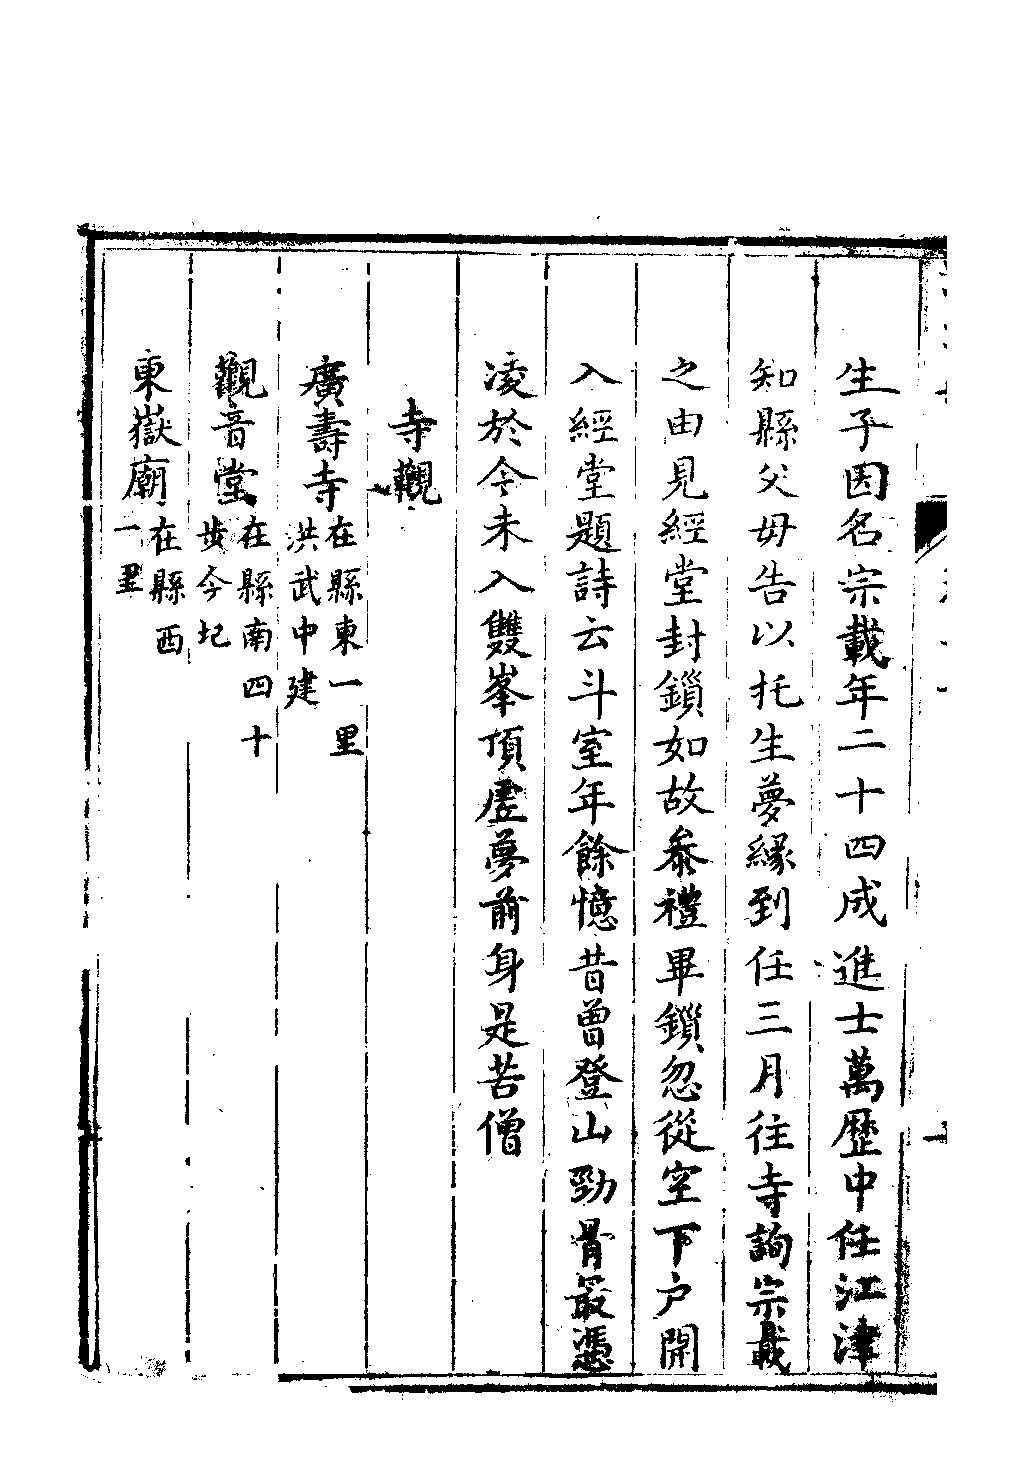 生子因名宗載年二十四成進士萬歷中任江津
知縣父毋告以托生夢緣到任三月往寺詢宗載
之由見經堂封鎖如故叅禮畢鎖忽從空下户開
入經堂題詩云斗室年餘憶昔曾登山勁骨最憑
凌於今未入雙峯頂虛夢前身是苦僧
寺觀
廣壽寺在縣東一里洪武中建
觀音堂在縣南四十步今圮
東嶽廟在縣西一里